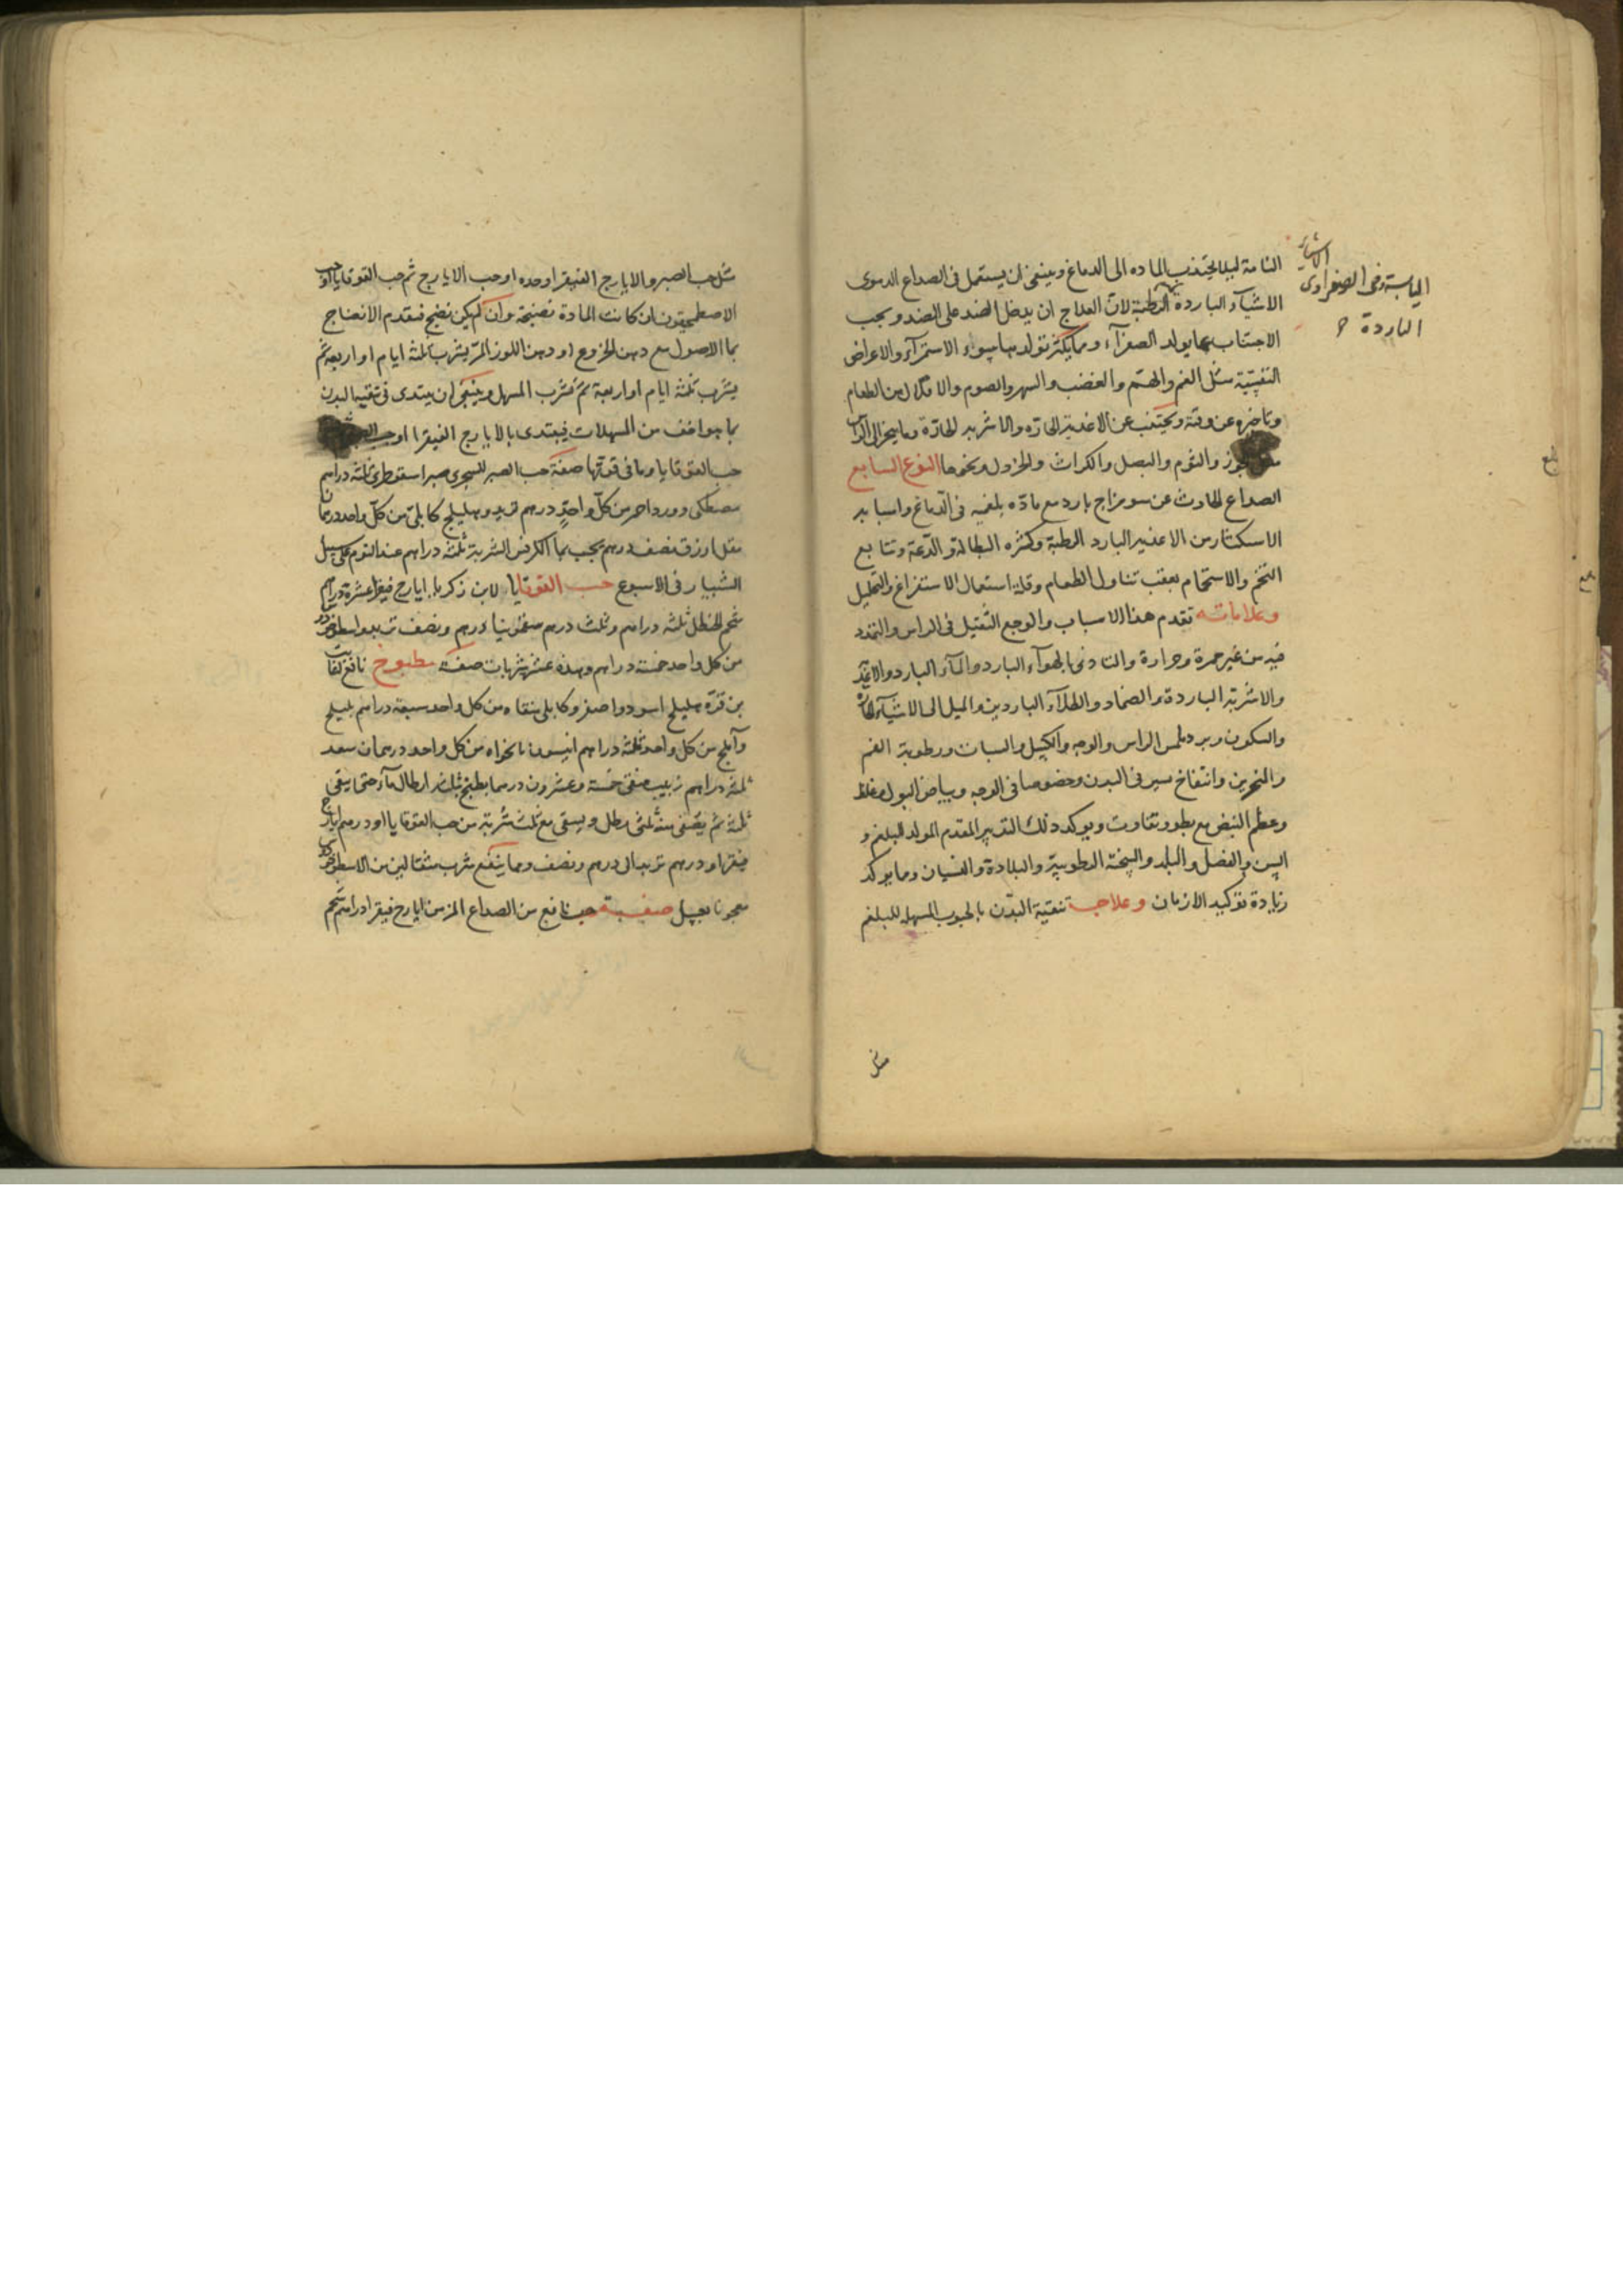 التامة ليلا يجتذب المادة الى الدماغ وينبغى ان يستعمل فى الصداع الدموى
الاشياء الباردة الرطبة لان العلاج ان يدخل الضد على الضد ويجب
الاجتناب عما يولد الصفرآء ومما يكثر تولدها سوء الاستمرآء والاعراض
النفسية مثل الغم والهم والغضب والسهر والصوم والاقلال من الطعام
وتاخيره عن وقته ويجتنب عن الاغذية الحارة والاشربه الحارة وما يبخر الى الراس
والثوم والبصل والكراث والخردل ونحوها النوع السابع
الصداع الحادث عن سو مزاج بارد مع مادة بلغميه فى الدماغ واسبابه
الاستكثار من الاغذيه البارد الرطبة وكثره البطالة والدعة وتتابع
التخم والاستحمام بعقب تناول الطعام وقلة استعمال الاستفراغ والتحليل
وعلاماته تقدم هذا الاسباب والوجع الثقيل فى الراس والتمدد
فيه من غير حمرة وحرارة والتاذى بالهوآء البارد والمآء البارد والاغذية
والاشربة الباردة والضماد والطلآء الباردين والميل الى الاشيآء الحارة
والسكون وبرد ملمس الراس والوجه والكسل والسبات ورطوبة الفم
والنخرين وانتفاخ يسير فى البدن وخصوصا فى الوجه وبياض البول وغلظ
وعظم النبض مع بطو وتفاوت ويوكد ذلك التدبير المقدم المولد للبلغم و
السن والفصل والبلد والسخنة الرطوبية والبلادة والنسيان وما يوكد
زيادة توكيد الازمان وعلاجه تنقية البدن بالحبوب المسهله للبلغم
الاشياء
اليابسة وفى الصفراوى
الباردة
مثل
مثل حب الصبر والايارج الفيقرا وحده او حب الايارج ثم حب القوقايا او حب
الاصطمحيقون ان كانت المادة نضيجة وان لم يكن نضج فتقدم الانضاج
بما الاصول مع دهن الخروع او دهن اللوز المر يشرب ثلثة ايام او اربعه ثم
يشرب ثلثة ايام او اربعة ثم شرب المسهل وينبغى ان يبتدى فى تنقيه البدن
بما يوافق من المسهلات فيبتدى بالايارج الفيقرا او حب
حب القوقايا وما فى قوتها صفة حب الصبر للسجزى صبر اسقوطرى ثلثة دراهم
مصطكى وورد احمر من كل واحد درهم تربد وهليلج كابلى من كل واحد درهمان
مقل ازرق نصف درهم يحبب بما الكرفس الشربة ثلثة دراهم عند النوم على سبيل
الشبيار فى الاسبوع حب القوقايا لابن زكريا ايارج فيقرا عشرة دراهم
شحم الحنظل ثلثه دراهم وثلث درهم سقمونيا درهم ونصف تربد واسطوخودس
من كل واحد خمسة دراهم وهذه عشر شربات صفة مطبوخ نافع لثابت
بن قرة هليلج اسود واصفر وكابلى منقاه من كل واحد سبعة دراهم بليلج
وآملج من كل واحد ثلثة دراهم انيسون نانخواه من كل واحد درهمان سعد
ثلثة دراهم زبيب منقى خمسة وعشرون درهما يطبخ بثلثه ارطال مآء حتى يبقى
ثلثه ثم يصفى منه ثلثى رطل ويسقى مع ثلث شربة من حب القوقايا او درهم ايارج
فيقرا ودرهم تربد الى درهم ونصف ومما ينفع شرب مثقالين من الاسطوخودس
معجونا بعسل صفة حب نافع من الصداع المزمن ايارج فيقرا دراهم شحم